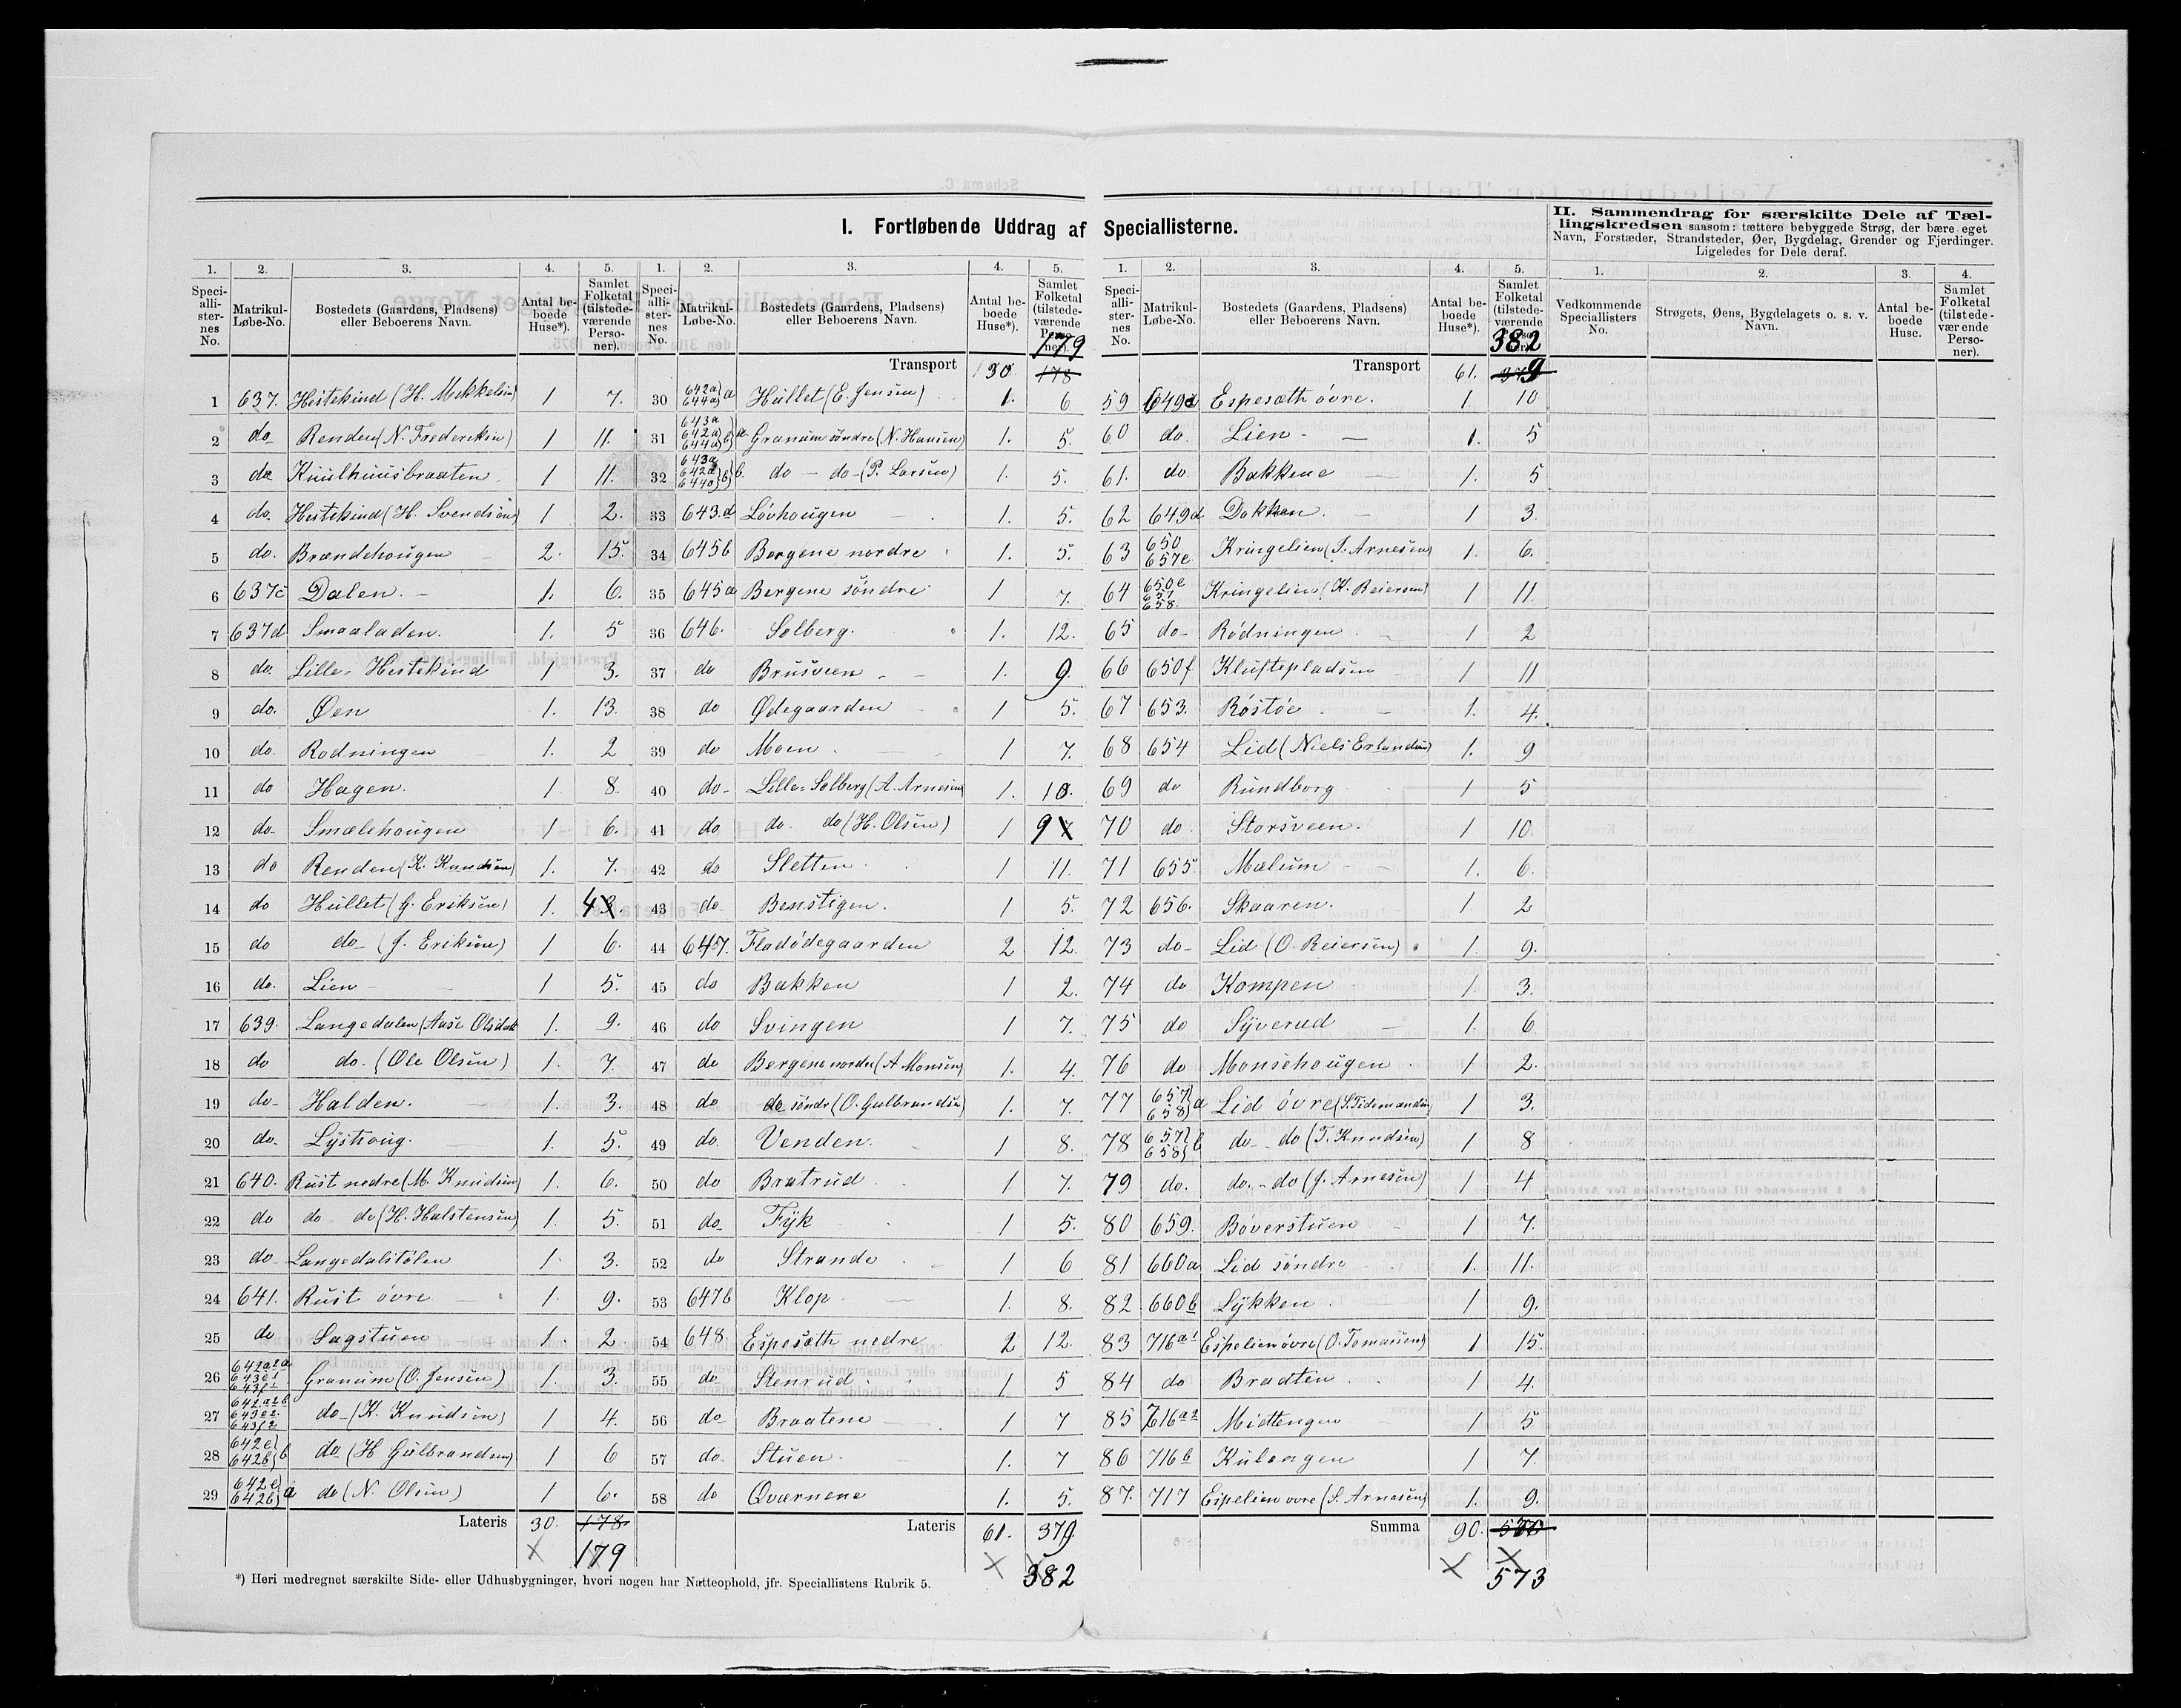 I. Fortløbende Uddrag af Speciallisterne.
II. Sammendrag for særskilte Dele af Tællingskredsen saasom: tættere bebyggede Strøg, der bære eget
Navn, Forstæder, Strandsteder, Øer, Bygdelag, Grender og Fjerdinger.
Ligeledes for Dele deraf.
1. 2. 3. 4. 5.
Speciallisternes No. Matrikul-Løbe-No. Bostedets (Gaardens, Pladsens) eller Beboerens Navn. Antal beboede Huse*). Samlet Folketal (tilstedeværende Personer).
1 637. Hestekind (H. Mekkelsen) 1 7.
2 do Renden (N. Frederiksen) 1 11.
3 do Knulhuusbraaten 1 11.
4 do. Hestekind (H. Svendsen) 1 2.
5 do. Brændehougen 2. 15.
6 637c Dalen. 1. 6.
7 637d Smaaladen. 1. 5
8 do. Lille-Hestekind 1 3.
9 do. Øen 1. 13.
10 do. Rodningen 1. 2
11 do Hagen. 1 8.
12 do Smælehougen 1 6.
13 do Renden (K. Knudsen) 1. 7.
14 do Hullet (G. Eriksen) 1. 4
15 do do (J. Eriksen) 1 6.
16 do. Lien 1 5.
17 639. Langedalen (Aase Olsdatt 1. 9.
18 do do. (Ole Olsen) 1. 7.
19 do Halden. 1. 3.
20 do Lysthoug. 1. 5.
21 640. Rust nedre (M. Knudsen) 1. 6.
22 do do do (H. Halstensen) 1. 5.
23 do Langedalstølen 1. 3.
24 641. Rust øvre 1. 9.
25 do Sagstuen 1. 2
26 642a2a 643e1 643f1 Granum (O. Jensen) 1. 3.
27 642a2b 643e2 643f2 do (K. Knudsen) 1 4.
28 642e 642b b do (H Gulbrandsen) 1 6
29 642e 642b a do (N. Olsen) 1 6.
Lateris 30. 178
179
1. 2. 3. 4. 5.
Speciallisternes No. Matrikul-Løbe-No. Bostedets (Gaardens, Pladsens) eller Beboerens Navn. Antal beboede Huse*). Samlet Folketal (tilstedeværende Personer).
179
Transport 30 178
30 642a 644a a Hullet (E. Jensen) 1. 6
31 643a 642a 644a b a Granum søndre (N. Hansen) 1. 5.
32 643a 642a 644a b b. do do (P. Larsen) 1. 5.
33 643.d Løvhougen 1. 5.
34 645b Bergene nordre 1. 5.
35 645a Bergene søndre 1 7.
36 646. Solberg. 1. 12.
37 do Brusveen 1. 9.
38 do Ødegaarden 1 5.
39 do Moen. 1 7.
40 do Lille-Solberg (A. Arnesen) 1. 10.
41 do do. do (H. Olsen) 1 9
42 do Sletten 1 11.
43 do Benstigen. 1 5.
44 647. Fladødegaarden 2 12.
45 do Bakken 1 2.
46 do Svingen 1 7.
47 do Bergene nordre (A Monsen) 1. 4.
48 do do søndr (O. Gulbrandsen) 1. 7.
49 do. Venden. 1 8.
50 do Bratrud 1 7.
51 do Fyk 1 5.
52 do Strande 1 6
53 647b Klop 1. 8.
54 648 Espesæth nedre 2 12.
55 do Stenrud. 1 5
56 do Braatene 1 7
57 do. Stuen. 1. 7
58 do Qværnene 1. 5.
Lateris 61. 379
382
1. 2. 3. 4. 5.
Speciallisternes No. Matrikul-Løbe-No. Bostedets (Gaardens, Pladsens) eller Beboerens Navn. Antal beboede Huse*). Samlet Folketal (tilstedeværende Personer).
382
Transport 61. 379
59 649a Espesæth øvre. 1. 10
60 do. Lien 1. 5
61. do Bakkene 1. 5
62 649d Dokken. 1 3.
63 650 657e Kringelien (T. Arnesen) 1. 6.
64 650e 657 658. Kringelien (K. Reiersen) 1 11.
65 do Rødningen 1 2
66 650f Kluftepladsen 1 11
67 653. Røstøe 1. 4.
68 654 Lid (Niels Erlandsen) 1. 9
69 do Rundborg 1 5
70 do. Storsveen. 1 10.
71 655. Mælum 1. 6.
72 656. Skaaren. 1. 2
73 do Lid (O. Reiersen) 1. 9.
74 do Kompen 1. 3.
75 do Syverud 1. 6
76 do Monsehougen 1 2.
77 657 658 a Lid øvre (S. Tidemandsen) 1 3.
78 657 658 b do do (T. Knudsen) 1 8
79 do. do. do (J. Arnesen) 1 4
80 659. Bøverstuen 1 7.
81 660a Lid søndre 1. 11.
82. 660b Lykken. 1 9.
83 716a1 Espelien øvre (O. Tomassen) 1 15.
84 do Bradten 1 4.
85 716a2 Midtengen 1 5
86 716b Kulengen 1 7.
87. 717 Espelien øvre (S. Arnesen) 1. 9.
Summa 90.
573
1. 2. 3. 4.
Vedkommende Speciallisters No. Strøgets, Øens, Bygdelagets o. s. v. Navn. Antal beboede Huse. Samlet Folketal (tilstedeværende Personer).
*) Heri medregnet særskilte Side- eller Udhusbygninger, hvori nogen har Natteophold, jfr. Speciallistens Rubrik 5.